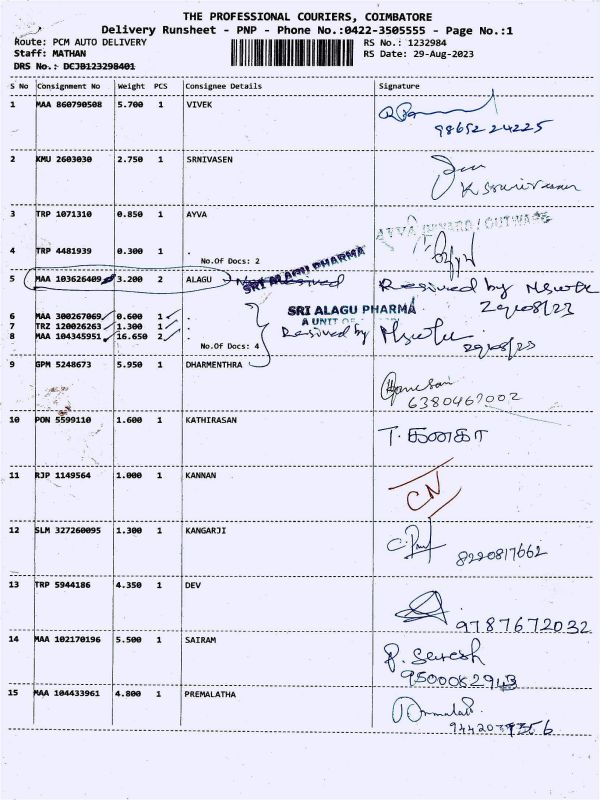 THE PROFESSIONAL COURIERS, COIMBATORE
Delivery Runsheet - PNP - Phone No.:0422-3505555 - Page No.:1
Route: PCM AUTO DELIVERY RS No.: 1232984
Staff: MATHAN RS Date: 29-Aug-2023
DRS No.: DCJB123298401
S No Consignment No Weight PCS Consignee Details Signature
1 MAA 860790508 5.700 1 VIVEK
9865224225
2 KMU 2603030 2.750 1 SRNIVASEN
K Srinivasan
3 TRP 1071310 0.850 1 AYVA
AYVA INWARD / OUTWARD
4 TRP 4481939 0.300 1 .
No.Of Docs: 2
SRI ALAGU PHARMA
5 MAA 103626409 3.200 2 ALAGU Not Resived Resived by
29/08/23
SRI ALAGU PHARMA
6 MAA 300267069 0.600 1 .
A UNIT OF
7 TRZ 120026263 1.300 1 .
Resived by
8 MAA 104345951 16.650 2 .
29/08/23
No.Of Docs: 4
9 GPM 5248673 5.950 1 DHARMENTHRA
Ganesan
6380467002
10 PON 5599110 1.600 1 KATHIRASAN
T. கனகா
11 RJP 1149564 1.000 1 KANNAN
CN
12 SLM 327260095 1.300 1 KANGARJI
8220817662
13 TRP 5944186 4.350 1 DEV
9787672032
14 MAA 102170196 5.500 1 SAIRAM
P. Suresh
9500062943
15 MAA 104433961 4.800 1 PREMALATHA